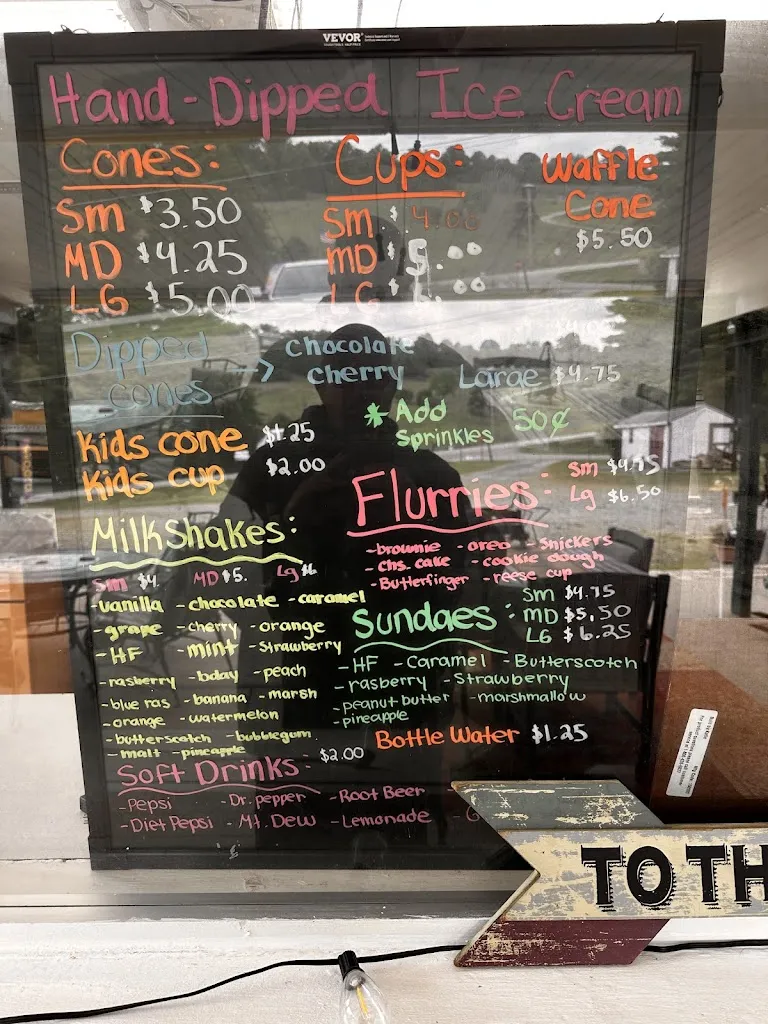 VEVOR
Hand-Dipped Ice Cream
Cones:
Sm $3.50
MD $4.25
LG $5.00
Cups:
Sm $4.00
mD $5.00
LG $ .00
Waffle
Cone
$5.50
Dipped
cones
Chocolate
cherry
Large $4.75
* Add
Sprinkles 50¢
Kids cone $1.25
Kids cup $2.00
Flurries:
Sm $4.75
Lg $6.50
-brownie -oreo -Snickers
-Chs. cake -cookie dough
-Butterfinger -reese cup
MilkShakes:
Sm $4. MD $5. Lg $6
-vanilla -chocolate -caramel
-grape -cherry -orange
-HF -mint -Strawberry
rasberry -bday -peach
-blue ras -banana -marsh
-orange -watermelon
-butterscotch -bubblegum
-malt -pineapple
Sundaes:
Sm $4.75
MD $5.50
LG $6.25
-HF -Caramel -Butterscotch
-rasberry -Strawberry
-peanut butter -marshmallow
-pineapple
Bottle Water $1.25
Soft Drinks $2.00
-Pepsi -Dr. pepper -Root Beer
-Diet Pepsi -Mt. Dew -Lemonade
TO TH